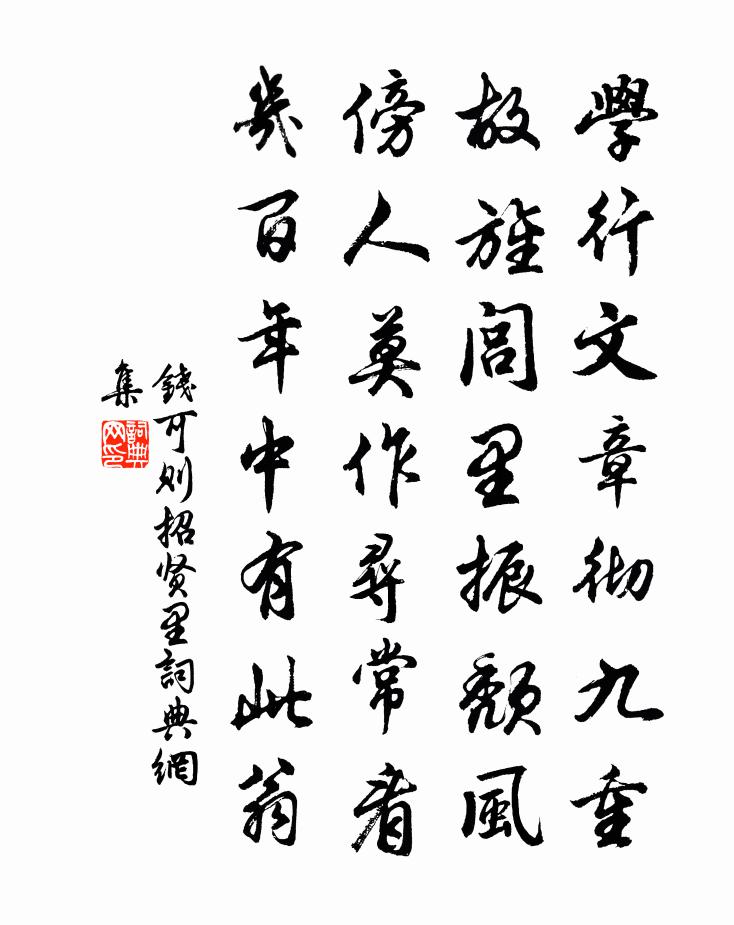 學行文章彻九重
故旌閭里振頹風
傍人莫作尋常看
幾百年中有此翁
錢可則招賢里詞典網
集
詞典
网印